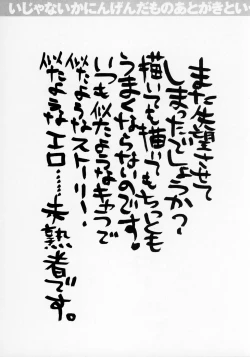 いじゃないかにんげんだものあとがきとい
また失望させて
しまたでしょうか?
描いても描いてもちっとも
うまくならないのです!
いつも似たようなキャラで
似たようなストーリー!
似たようなエロ……未熟者です。